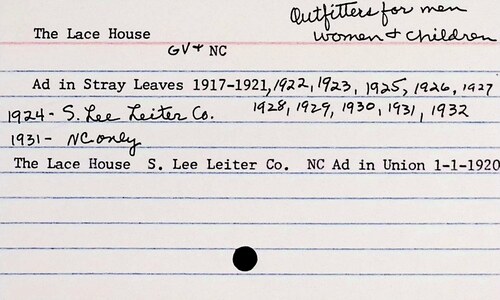 Outfitters for men
The Lace House
women + children
GV + NC
Ad in Stray Leaves 1917-1921, 1922, 1923, 1925, 1926, 1927
1928, 1929, 1930, 1931, 1932
1924- S. Lee Leiter Co.
1931- NC only
The Lace House S. Lee Leiter Co. NC Ad in Union 1-1-1920